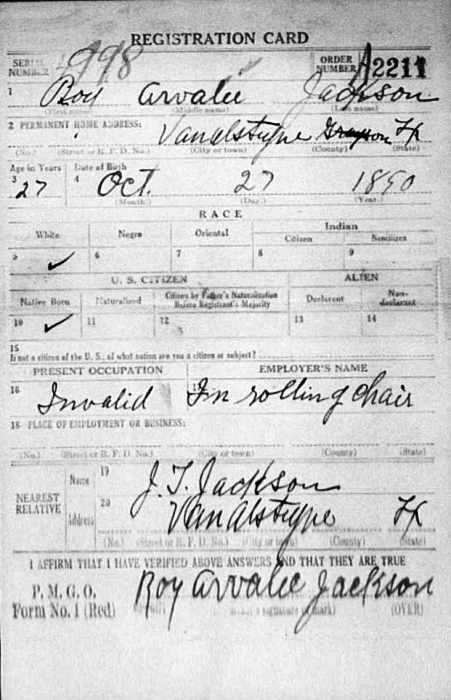 REGISTRATION CARD
SERIAL NUMBER 998 ORDER NUMBER A2211
1 Roy Arvalee Jackson
(First name) (Middle name) (Last name)
2 PERMANENT HOME ADDRESS:
Vanalstyne Grayson Tx
(No.) (Street or R. F. D. No.) (City or town) (County) (State)
Age in Years Date of Birth
3 27 4 Oct. 27 1890
(Month.) (Day.) (Year.)
RACE
White Negro Oriental Indian
Citizen Noncitizen
5 ✓ 6 7 8 9
U. S. CITIZEN ALIEN
Native Born Naturalized Citizen by Father's Naturalization Before Registrant's Majority Declarant Non-declarant
10 ✓ 11 12 13 14
15
If not a citizen of the U. S., of what nation are you a citizen or subject?
PRESENT OCCUPATION EMPLOYER'S NAME
16 Invalid In rolling chair
18 PLACE OF EMPLOYMENT OR BUSINESS:
(No.) (Street or R. F. D. No.) (City or town) (County) (State)
NEAREST RELATIVE
Name 19 J. T. Jackson
Address 20 Van Alstyne Tx
(No.) (Street or R. F. D. No.) (City or town) (County) (State)
I AFFIRM THAT I HAVE VERIFIED ABOVE ANSWERS AND THAT THEY ARE TRUE
P. M. G. O.
Form No. 1 (Red) Roy Arvalee Jackson
(Registrant's signature or mark) (OVER)